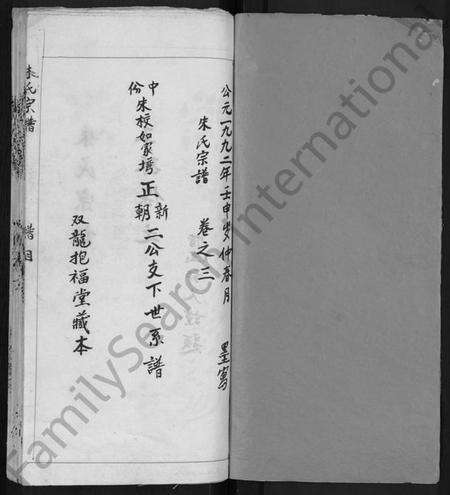 公元一九九二年壬申岁仲春月 墨寓
朱氏宗譜 卷之三
中份朱校如家塆正新朝二公支下世系譜
双龍抱福堂藏本
朱氏宗譜 譜目
FamilySearch International